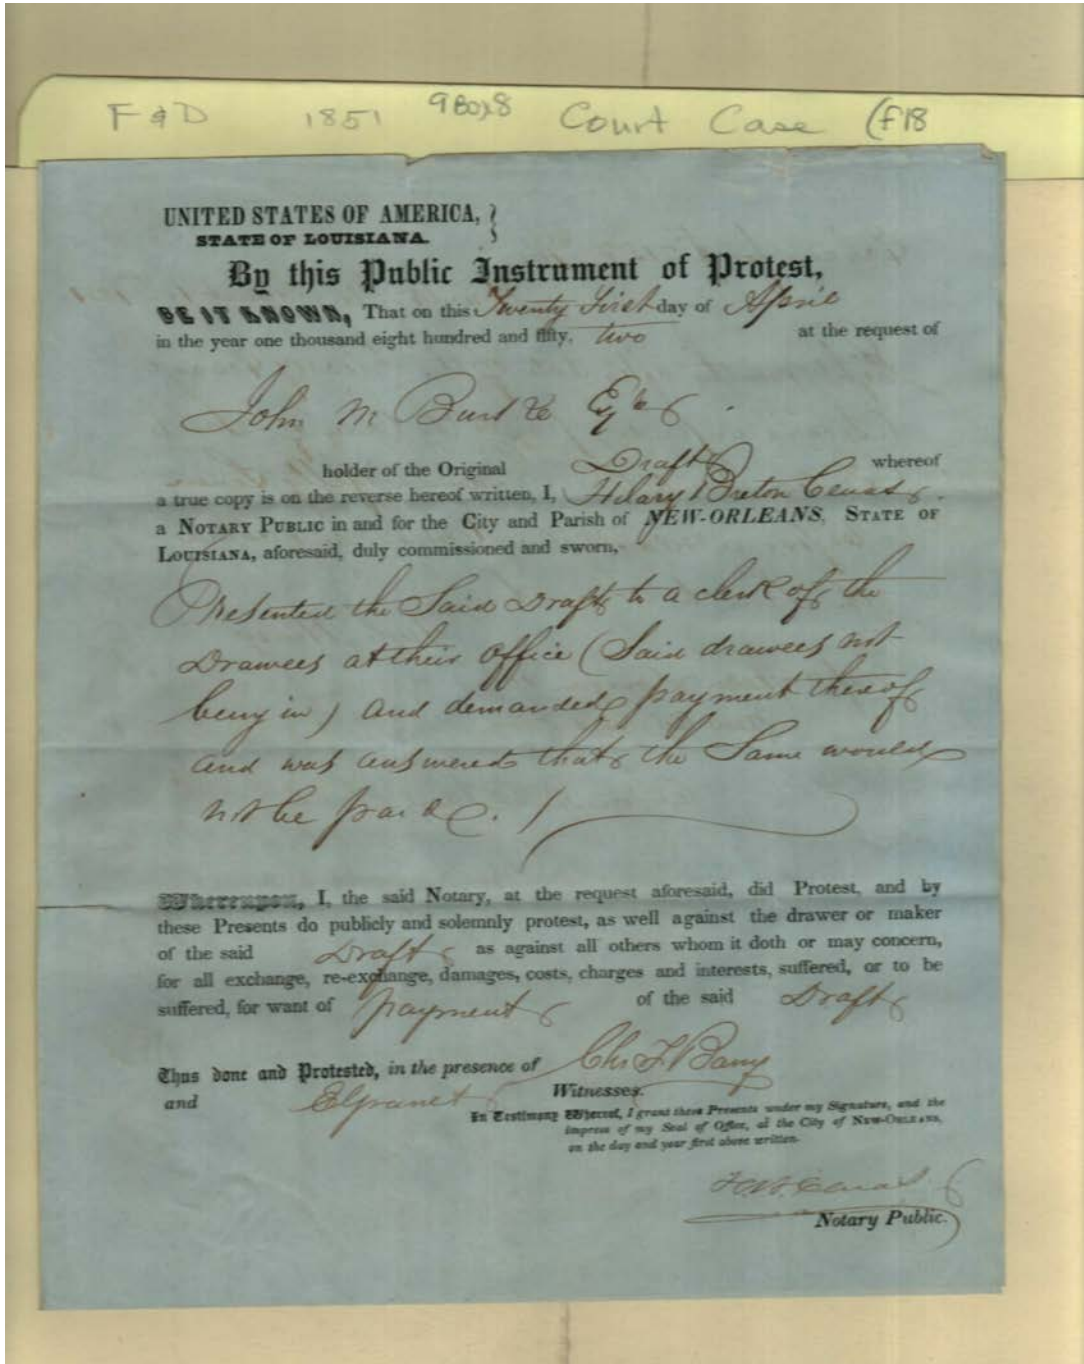 F & D 1851 9 Box 8 Court Case (f18
UNITED STATES OF AMERICA,
STATE OF LOUISIANA.
By this Public Instrument of Protest,
BE IT KNOWN, That on this Twenty First day of April
in the year one thousand eight hundred and fifty, two at the request of
John M
holder of the Original Draft whereof
a true copy is on the reverse hereof written, I, Hilary Breton Cenas
a NOTARY PUBLIC in and for the City and Parish of NEW-ORLEANS, STATE OF
LOUISIANA, aforesaid, duly commissioned and sworn,
Presented the Said Draft to a clerk of the
Drawees at their office (Said drawees not
being in) and demanded payment thereof
and was answered that the Same would
not be paid.
Whereupon, I, the said Notary, at the request aforesaid, did Protest, and by
these Presents do publicly and solemnly protest, as well against the drawer or maker
of the said Draft as against all others whom it doth or may concern,
for all exchange, re-exchange, damages, costs, charges and interests, suffered, or to be
suffered, for want of payment of the said Draft
Thus done and Protested, in the presence of Chs F Barry
and Witnesses.
In Testimony Whereof, I grant these Presents under my Signature, and the
impress of my Seal of Office, at the City of NEW-ORLEANS,
on the day and year first above written.
Cenas
Notary Public.